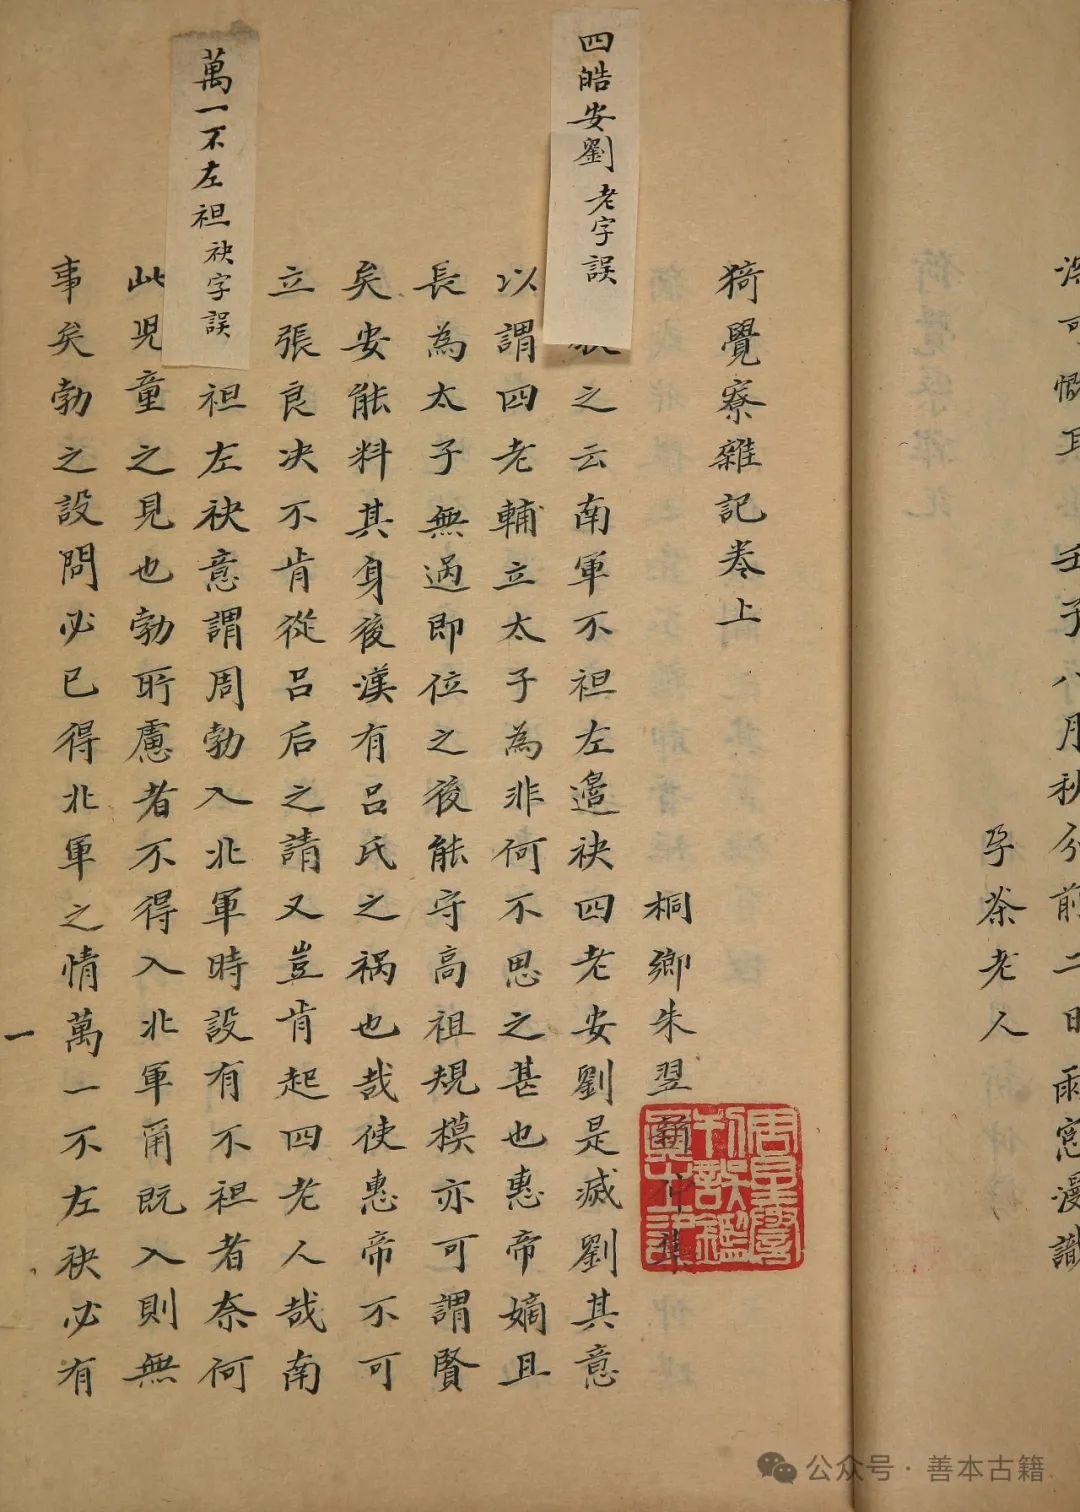 壬子八月秋分前二日雨窓漫識
孕茶老人
猗覺寮雜記卷上
桐鄉朱翌新仲集
四皓安劉老字誤
之云南軍不袒左邉袂四老安劉是滅劉其意
以謂四老輔立太子為非何不思之甚也惠帝嫡且
長為太子無過即位之後能守高祖規模亦可謂賢
矣安能料其身後漢有呂氏之禍也哉使惠帝不可
立張良决不肯從呂后之請又豈肯起四老人哉南
萬一不左袒袂字誤
袒左袂意謂周勃入北軍時設有不袒者奈何
此児童之見也勃所慮者不得入北軍爾既入則無
事矣勃之設問必已得北軍之情萬一不左袂必有
一
公众号·善本古籍